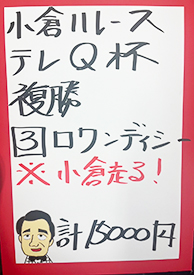 小倉11レース
テレQ杯
複勝
3ロワンディシー
※小倉走る!
計15000円